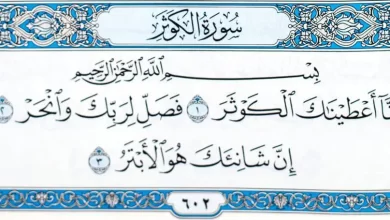 سُورَةُ الْكَوْثَرِ
بِسْمِ اللَّهِ الرَّحْمَٰنِ الرَّحِيمِ
نَّا أَعْطَيْنَاكَ الْكَوْثَرَ ١ فَصَلِّ لِرَبِّكَ وَانْحَرْ ٢
إِنَّ شَانِئَكَ هُوَ الْأَبْتَرُ ٣
٦٠٢